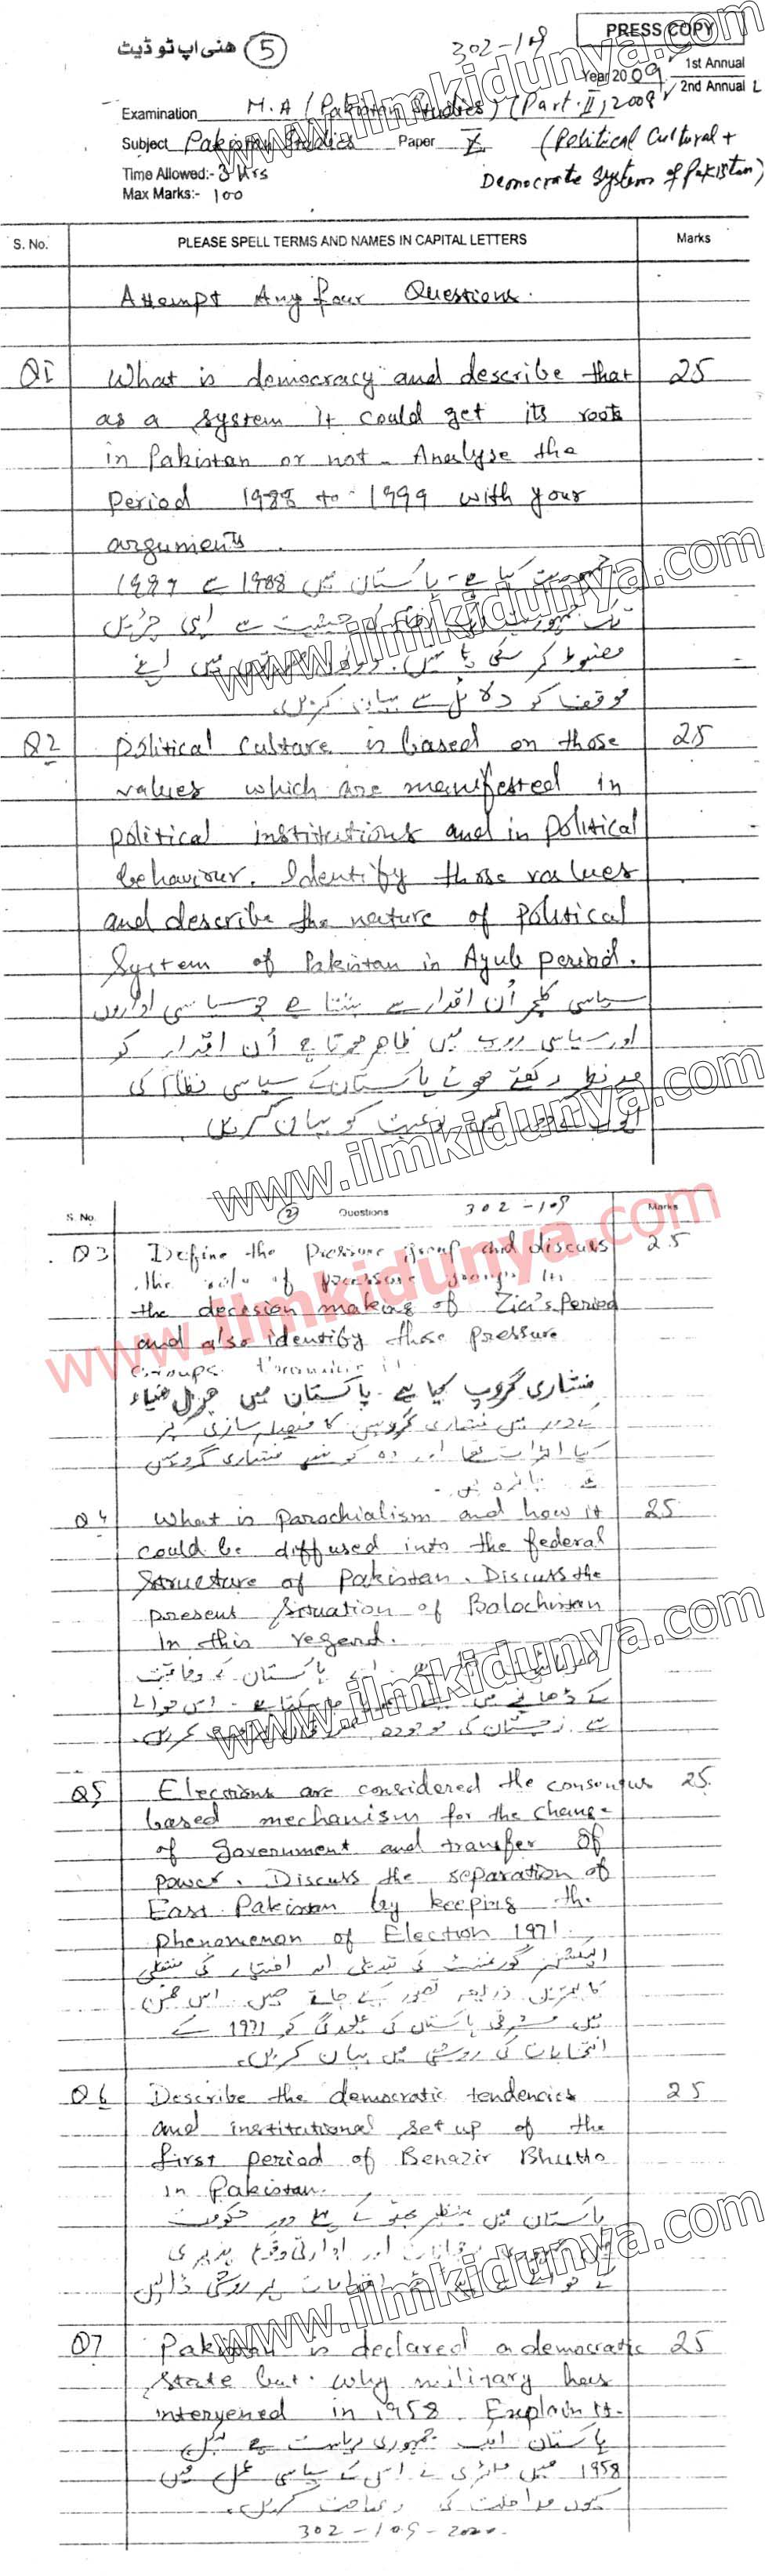 ھنی اپ ٹو ڈیٹ 5
302-109
PRESS COPY
Year 2009 1st Annual
2nd Annual
Examination M.A (Pakistan Studies) (Part-II) 2009
Subject Pakistan Studies Paper (Political Cultural +
Democrate System of Pakistan)
Time Allowed:- 3 Hrs
Max Marks:- 100
S. No. PLEASE SPELL TERMS AND NAMES IN CAPITAL LETTERS Marks
Attempt Any four Questions.
Q1 What is democracy and describe that 25
as a system it could get its roots
in Pakistan or not. Analyse the
Period 1988 to 1999 with your
arguments.
کیا ہے۔ پاکستان میں 1988 سے 1999
تک حیثیت سے اپنی جڑیں
مضبوط کر سکی یا نہیں۔ میں اپنے
موقف کو دلائل سے بیان کریں۔
Q2 Political Culture is based on those 25
values which are manifested in
political institutions and in political
behaviour. Identify those values
and describe the nature of Political
System of Pakistan in Ayub period.
سیاسی کلچر اُن اقدار سے بنتا ہے جو سیاسی اداروں
اور سیاسی رویہ میں ظاہر ہوتا ہے اُن اقدار کو
مدنظر رکھتے ہوئے پاکستان کے سیاسی نظام کی
نوعیت کو بیان کریں۔
www.ilmkidunya.com
S. No. (2) Questions 302-109 Marks
Q3 Define the Pressure group and discuss 25
the role of pressure groups in
the decesion making of Zia's Period
and also identify those pressure
Groups.
فشاری گروپ کیا ہے۔ پاکستان میں جنرل ضیاء
کے دور میں فشاری گروپس کا فیصلہ سازی پر
کیا اثرات تھا اور وہ کونسے فشاری گروپس
Q4 What is Parochialism and how it 25
could be diffused into the federal
Structure of Pakistan. Discuss the
present Situation of Balochistan
in this regard.
پاکستان کے وفاقیت
کے ڈھانچے میں جا سکتا ہے۔ اس حوالے
کی موجودہ کریں۔
Q5 Elections are considered the consensus 25
based mechanism for the change
of government and transfer of
power. Discuss the separation of
East Pakistan by keeping the
phenomenon of Election 1971.
الیکشنز گورنمنٹ کی تبدیلی اور اختیار کی منتقلی
کا بہترین ذریعہ تصور کیے جاتے ہیں۔ اس ضمن
میں مشرقی پاکستان کی علیحدگی کو 1971 کے
انتخابات کی روشنی میں بیان کریں۔
Q6 Describe the democratic tendencies 25
and institutional set up of the
first period of Benazir Bhutto
in Pakistan.
پاکستان میں بینظیر بھٹو کے پہلے دور حکومت
اور ادارتی
پر روشنی ڈالیں
Q7 Pakistan is declared a democratic 25
State but why military has
intervened in 1958. Explain it.
پاکستان ایک جمہوری ریاست ہے لیکن
1958 میں ملٹری نے اس کے سیاسی عمل میں
کیوں مداخلت کی وضاحت کریں۔
302-109-2020